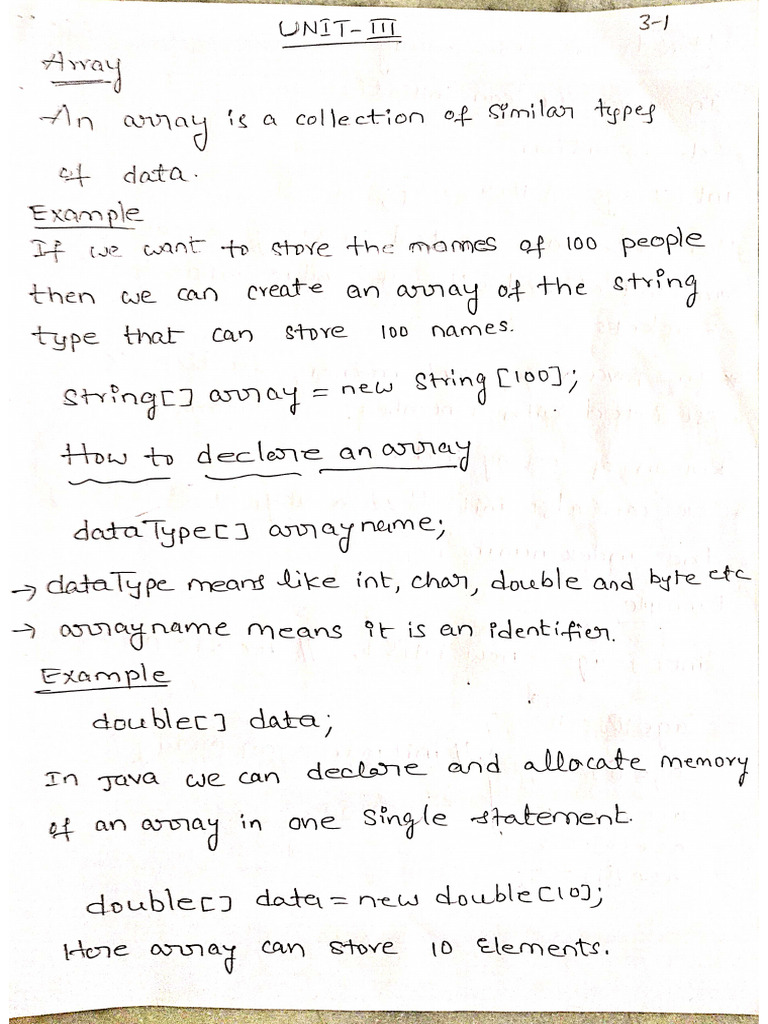 UNIT-III
3-1
Array
An array is a collection of similar types
of data.
Example
If we want to store the names of 100 people
then we can create an array of the string
type that can store 100 names.
String[] array = new String[100];
How to declare an array
dataType[] arrayname;
→ dataType means like int, char, double and byte etc
→ arrayname means it is an identifier.
Example
double[] data;
In Java we can declare and allocate memory
of an array in one single statement.
double[] data = new double[10];
Here array can store 10 Elements.